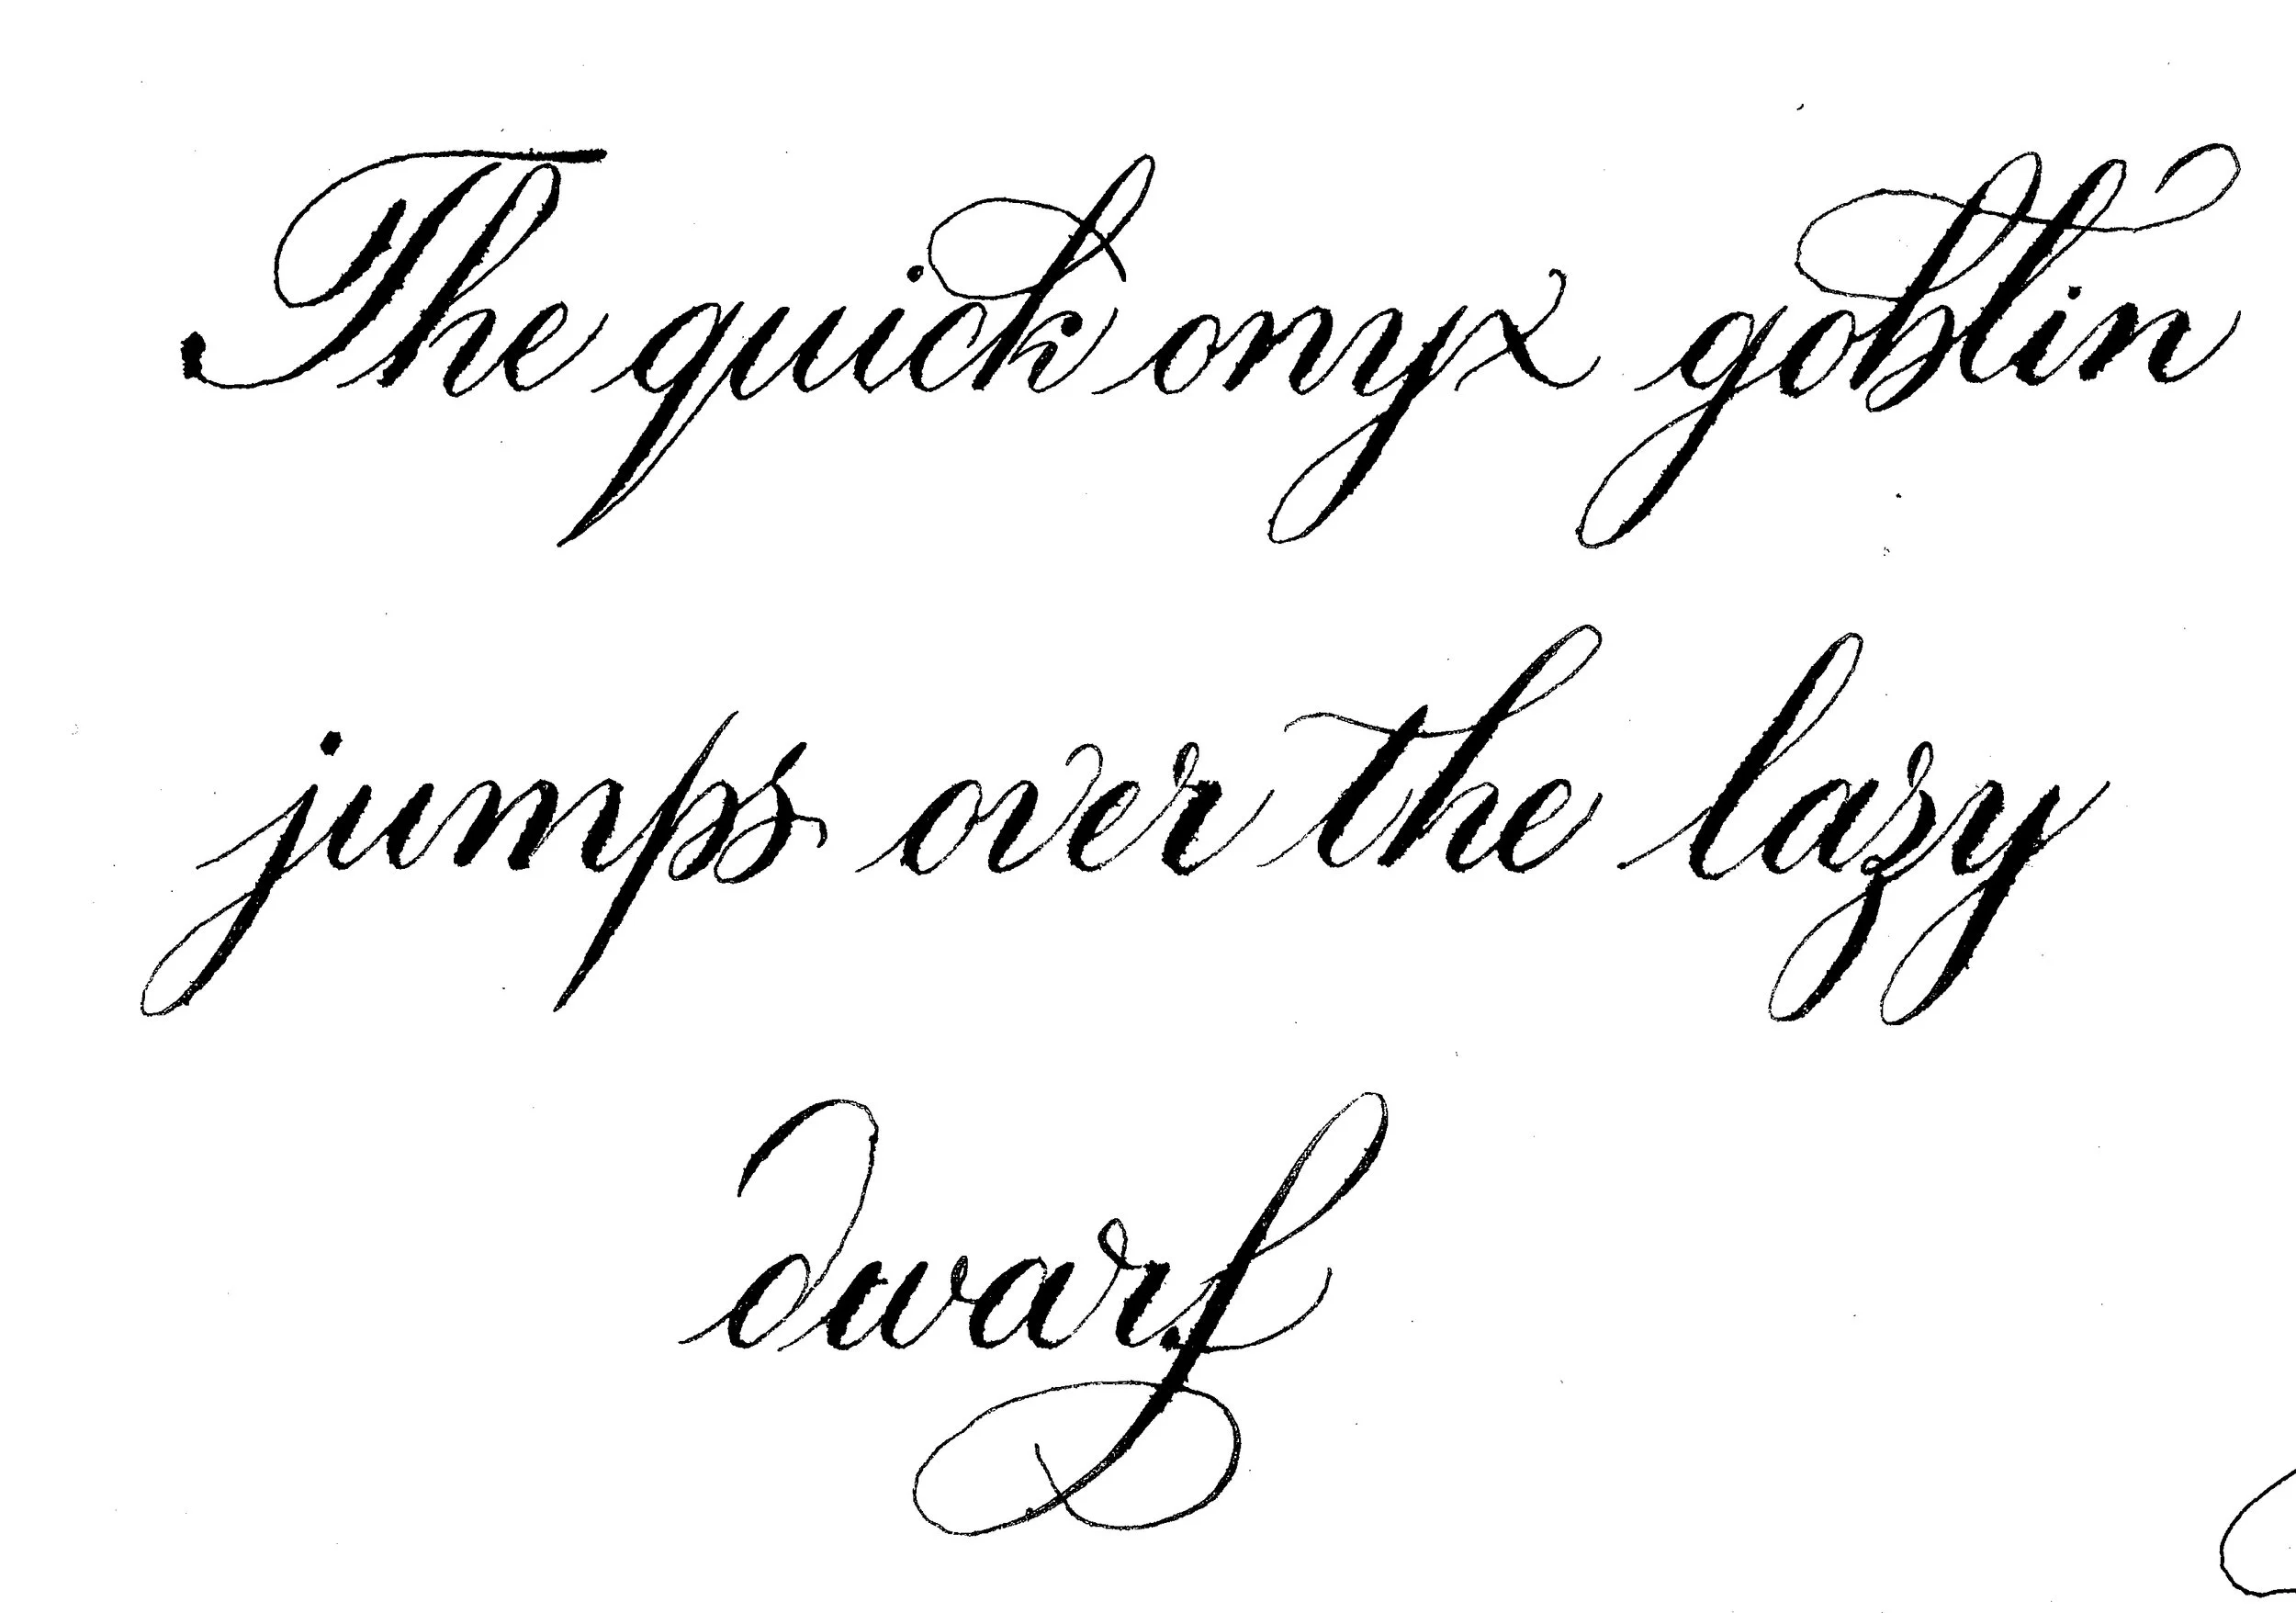 The quick onyx goblin
jumps over the lazy
dwarf